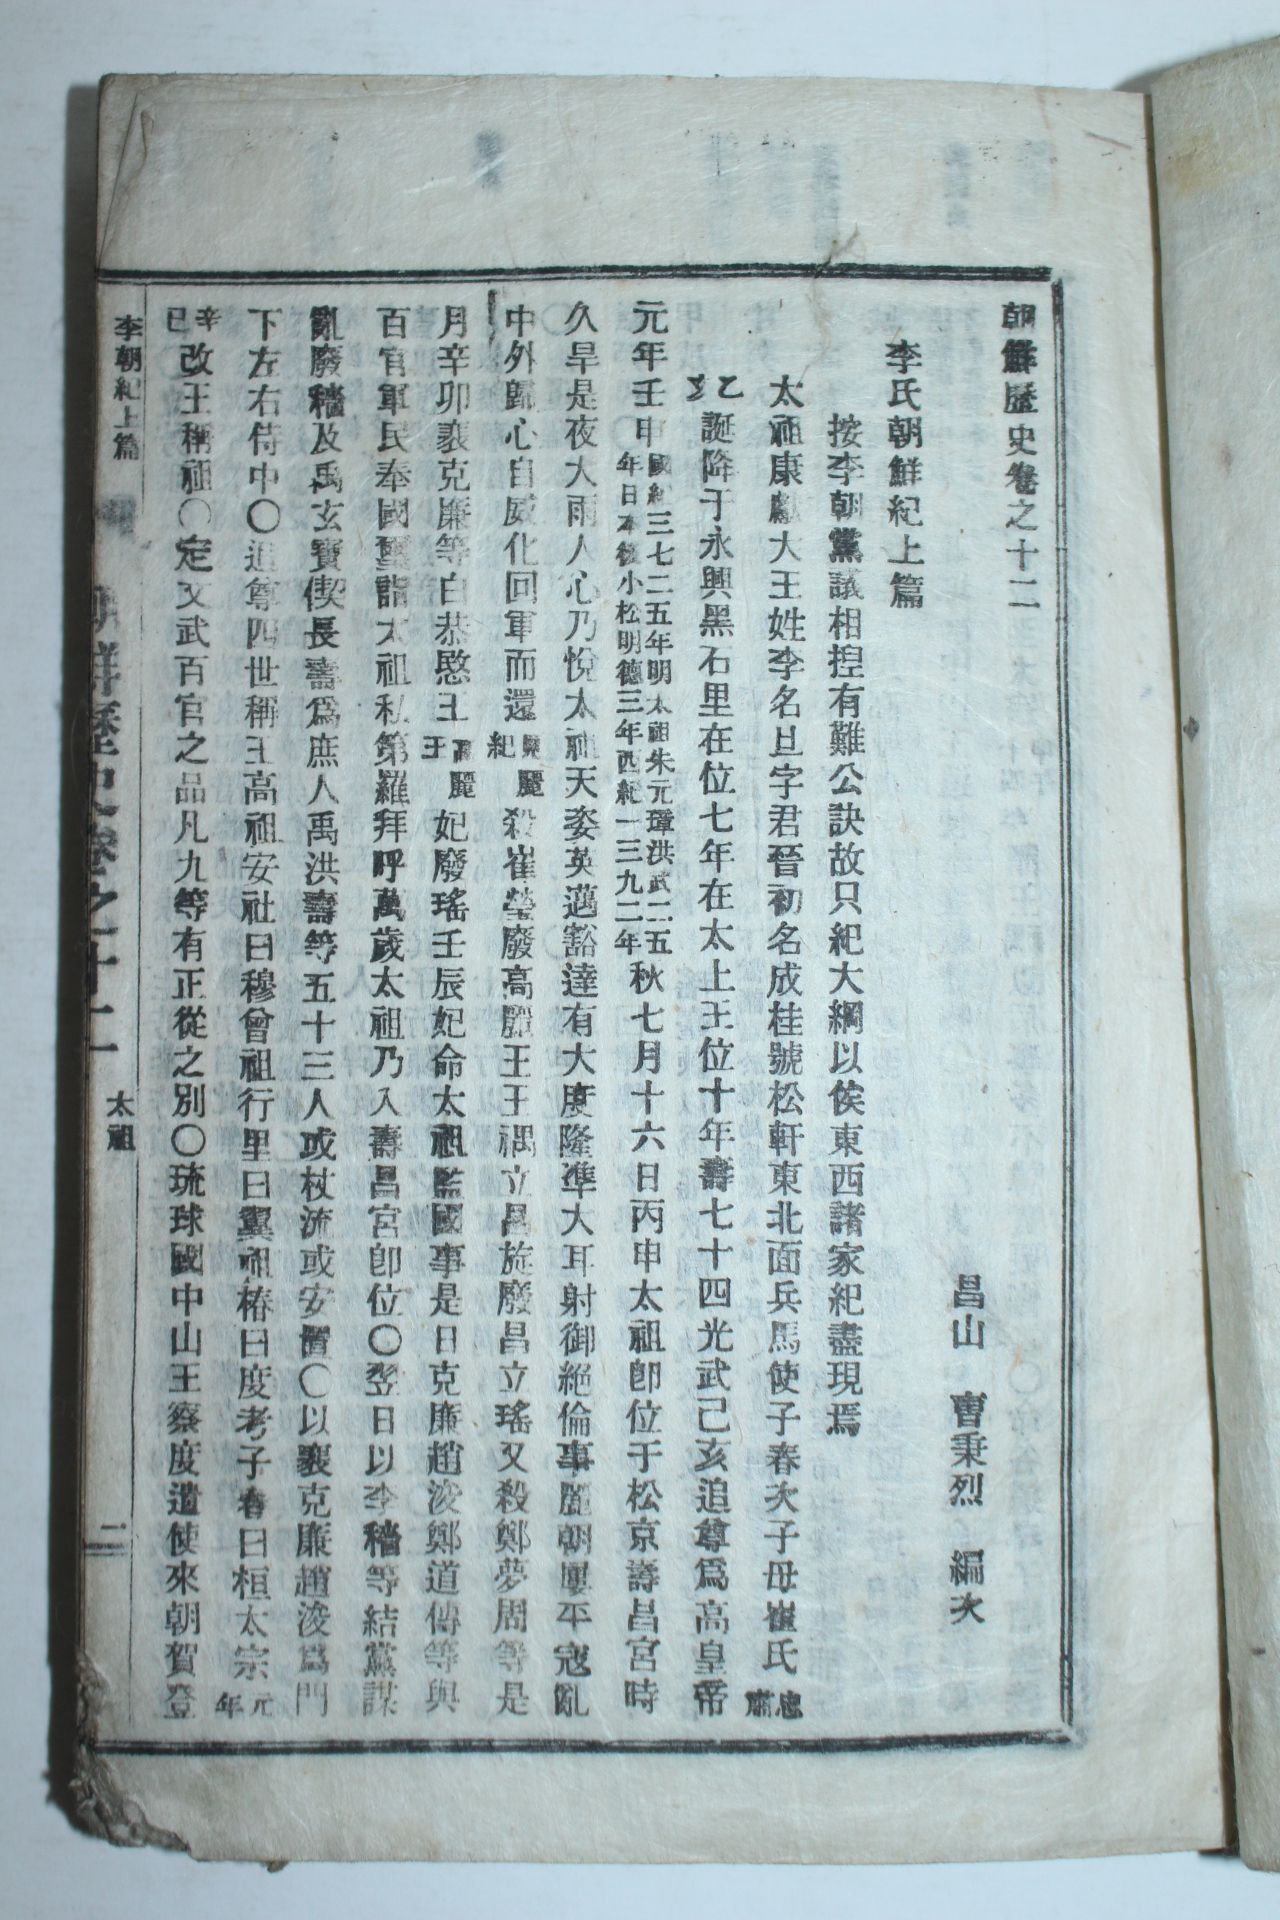 朝鮮歷史卷之十二
昌山 曺秉烈 編次
李氏朝鮮紀上篇
按李朝黨議相揑有難公訣故只紀大綱以俟東西諸家紀盡現焉
太祖康獻大王姓李名旦字君晉初名成桂號松軒東北面兵馬使子春次子母崔氏忠肅
乙亥誕降于永興黑石里在位七年在太上王位十年壽七十四光武己亥追尊爲高皇帝
元年壬申國紀三七二五年明太祖朱元璋洪武二五年日本後小松明德三年西紀一三九二年秋七月十六日丙申太祖卽位于松京壽昌宮時
久旱是夜大雨人心乃悅太祖天姿英邁豁達有大度隆準大耳射御絕倫事麗朝屢平寇亂
中外歸心自威化回軍而還見麗紀殺崔瑩廢高麗王王禑立昌旋廢昌立瑤又殺鄭夢周等是
月辛卯裵克廉等白恭愍王高麗王妃廢瑤壬辰妃命太祖監國事是日克廉趙浚鄭道傳等與
百官軍民奉國璽詣太祖私第羅拜呼萬歲太祖乃入壽昌宮卽位〇翌日以李穡等結黨謀
亂廢穡及禹玄寶偰長壽爲庶人禹洪壽等五十三人或杖流或安置〇以裵克廉趙浚爲門
下左右侍中〇追尊四世稱王高祖安社曰穆曾祖行里曰翼祖椿曰度考子春曰桓太宗元年
辛巳改王稱祖〇定文武百官之品凡九等有正從之別〇琉球國中山王察度遣使來朝賀登
李朝紀上篇
朝鮮歷史卷之十二
太祖
二